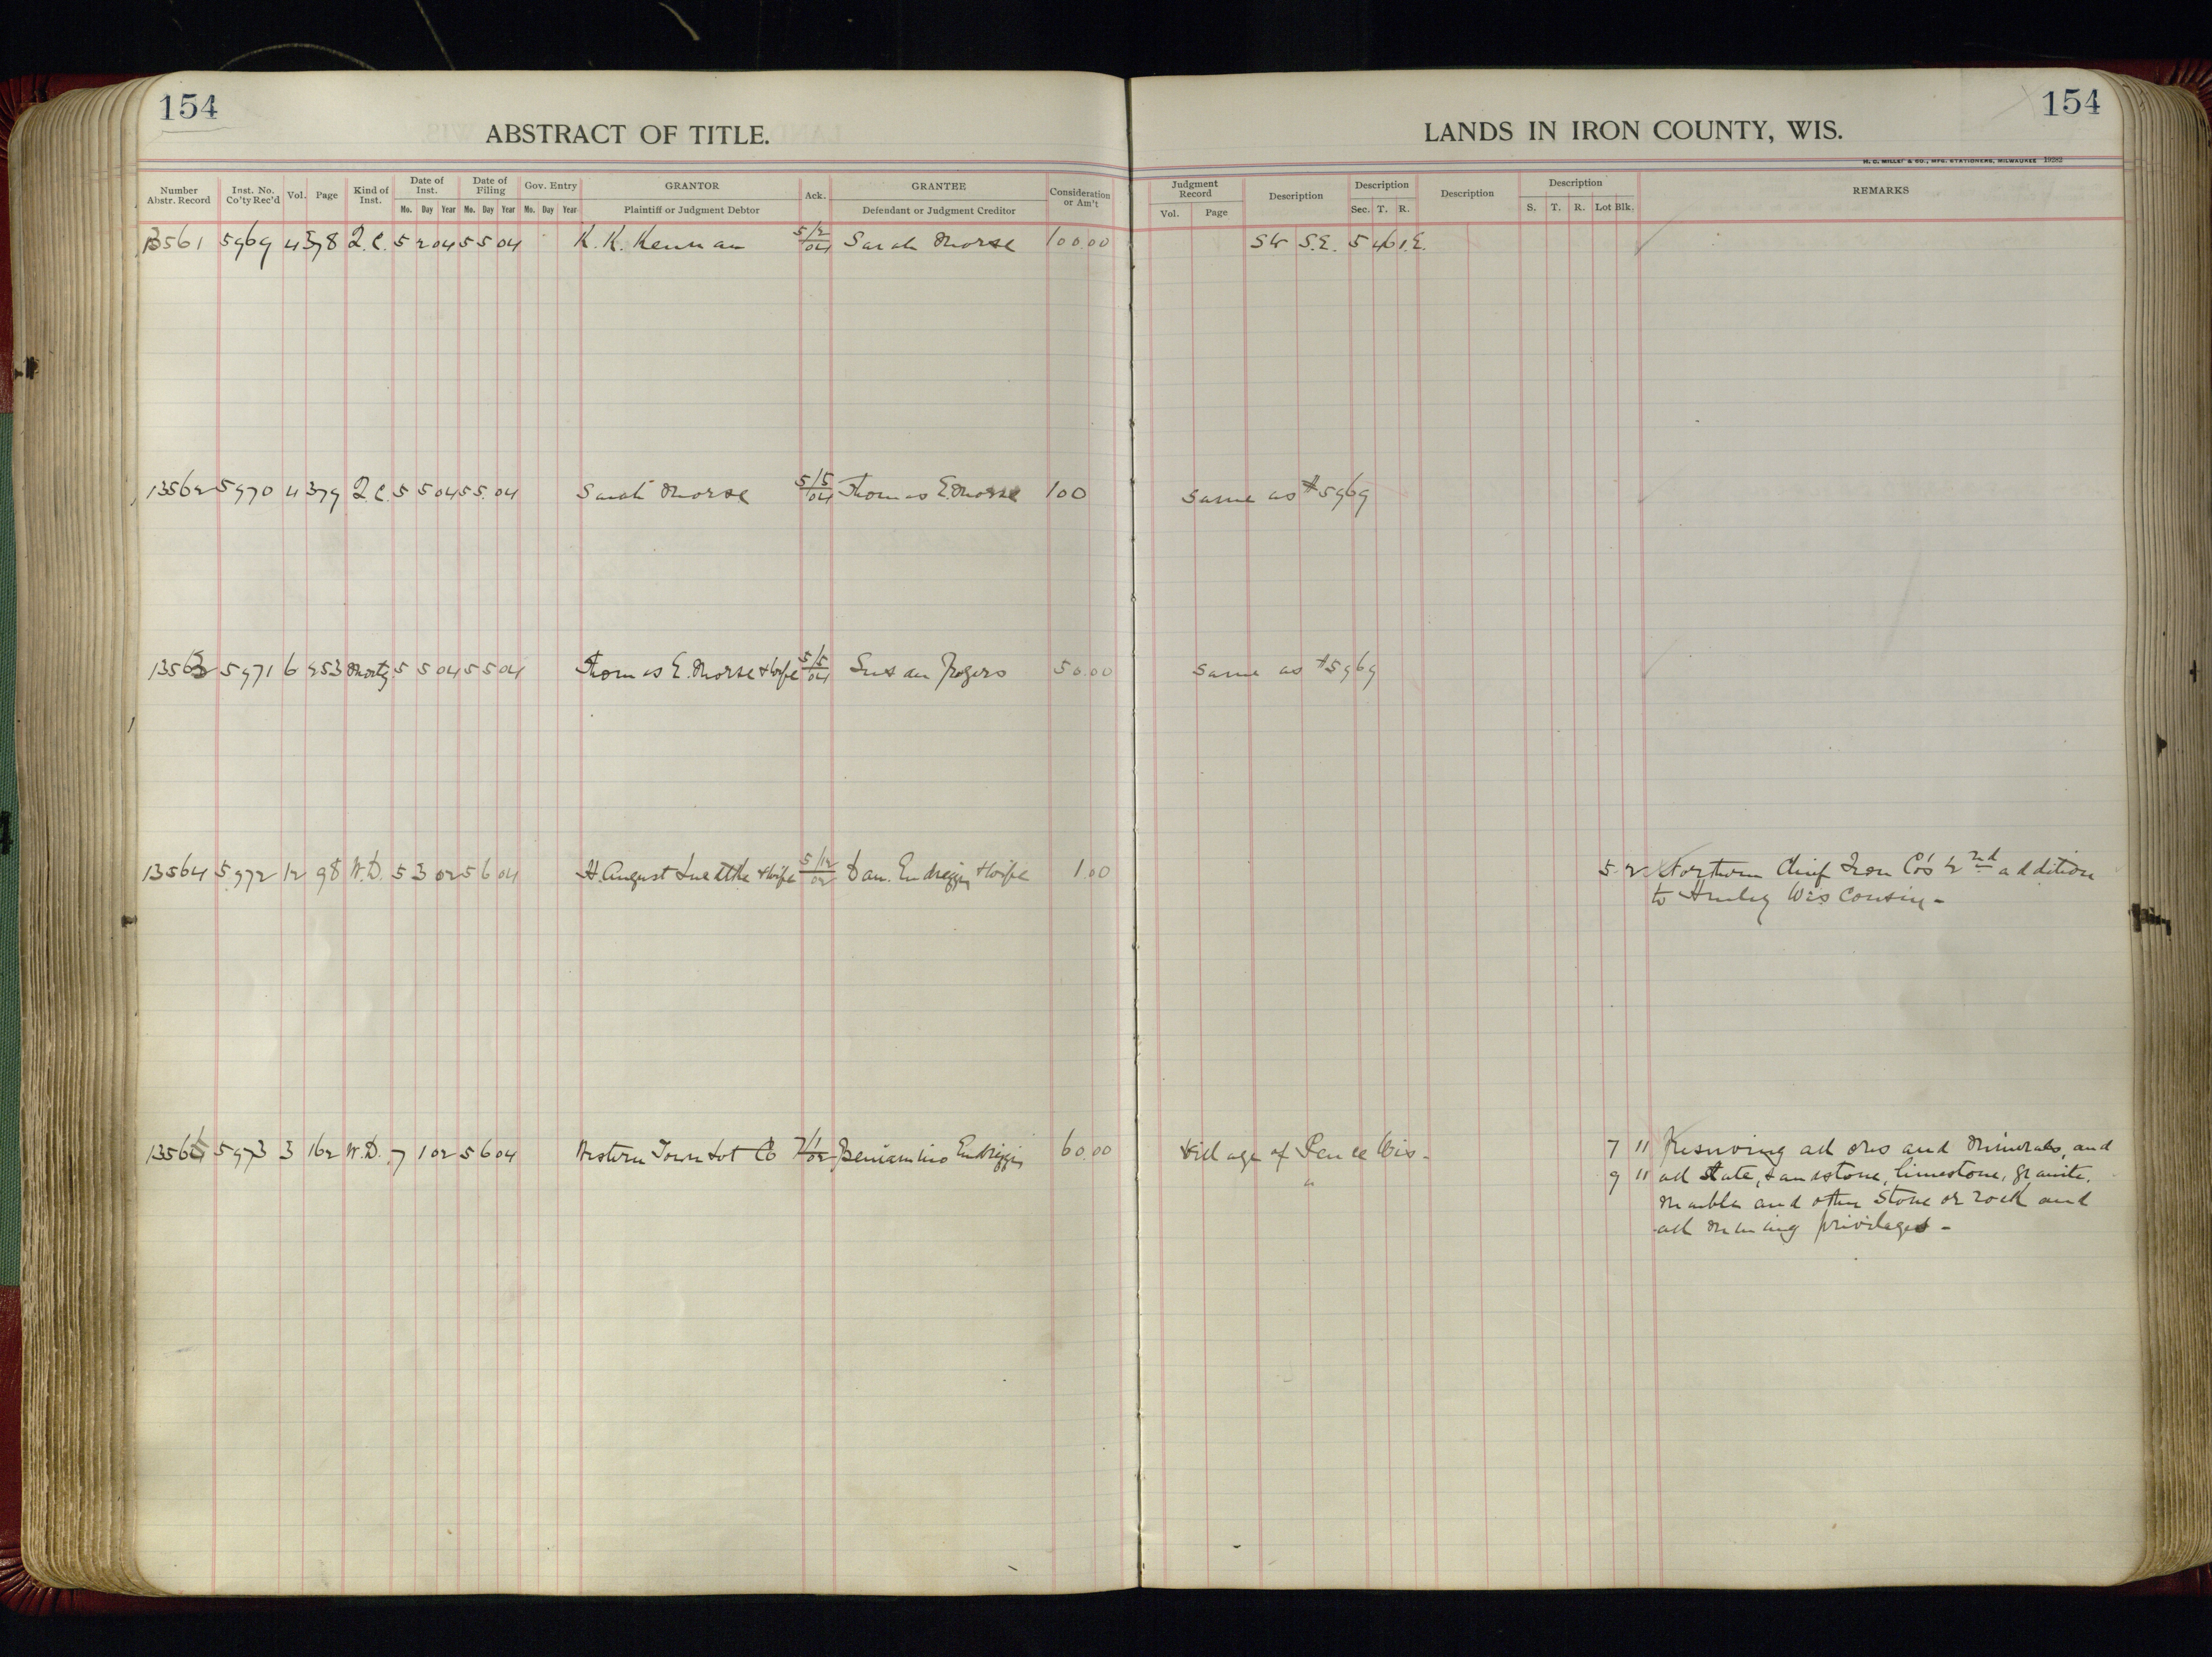 154
ABSTRACT OF TITLE.
LANDS IN IRON COUNTY, WIS.
154
H. C. MILLER & CO., MFG. STATIONERS, MILWAUKEE 19282
Number Abstr. Record Inst. No. Co'ty Rec'd Vol. Page Kind of Inst. Date of Inst. Mo. Day Year Date of Filing Mo. Day Year Gov. Entry Mo. Day Year GRANTOR Plaintiff or Judgment Debtor Ack. GRANTEE Defendant or Judgment Creditor Consideration or Am't
Judgment Record Vol. Page Description Description Sec. T. R. Description Description S. T. R. Lot Blk. REMARKS
13561 5969 4 378 Q.C. 5 2 04 5 5 04 K. K. Kennan 5/2/04 Sarah Morse 100.00 SW S.E. 5 46 1.E.
13562 5970 4 379 Q.C. 5 5 04 5 5. 04 Sarah Morse 5/5/04 Thomas E. Morse 100 Same as #5969
13563 5971 6 253 Mortg. 5 5 04 5 5 04 Thomas E. Morse & Wife 5/5/04 Susan Rogers 50.00 Same as #5969
13564 5972 12 98 W.D. 5 3 02 5 6 04 H. August Luedtke & Wife 5/12/02 Dan. Endrizzi & Wife 1.00 5. 2 Northern Chief Iron Co's 2nd addition
to Hurley Wisconsin -
13565 5973 3 162 W.D. 7 1 02 5 6 04 Western Town Lot Co 7/1/02 Beniamino Endrizzi 60.00 Village of Pence Wis - 7 11 Reserving all ores and Minerals, and
" 9 11 all slate, sandstone, limestone, granite,
marble and other Stone or rock and
all mining privileges -